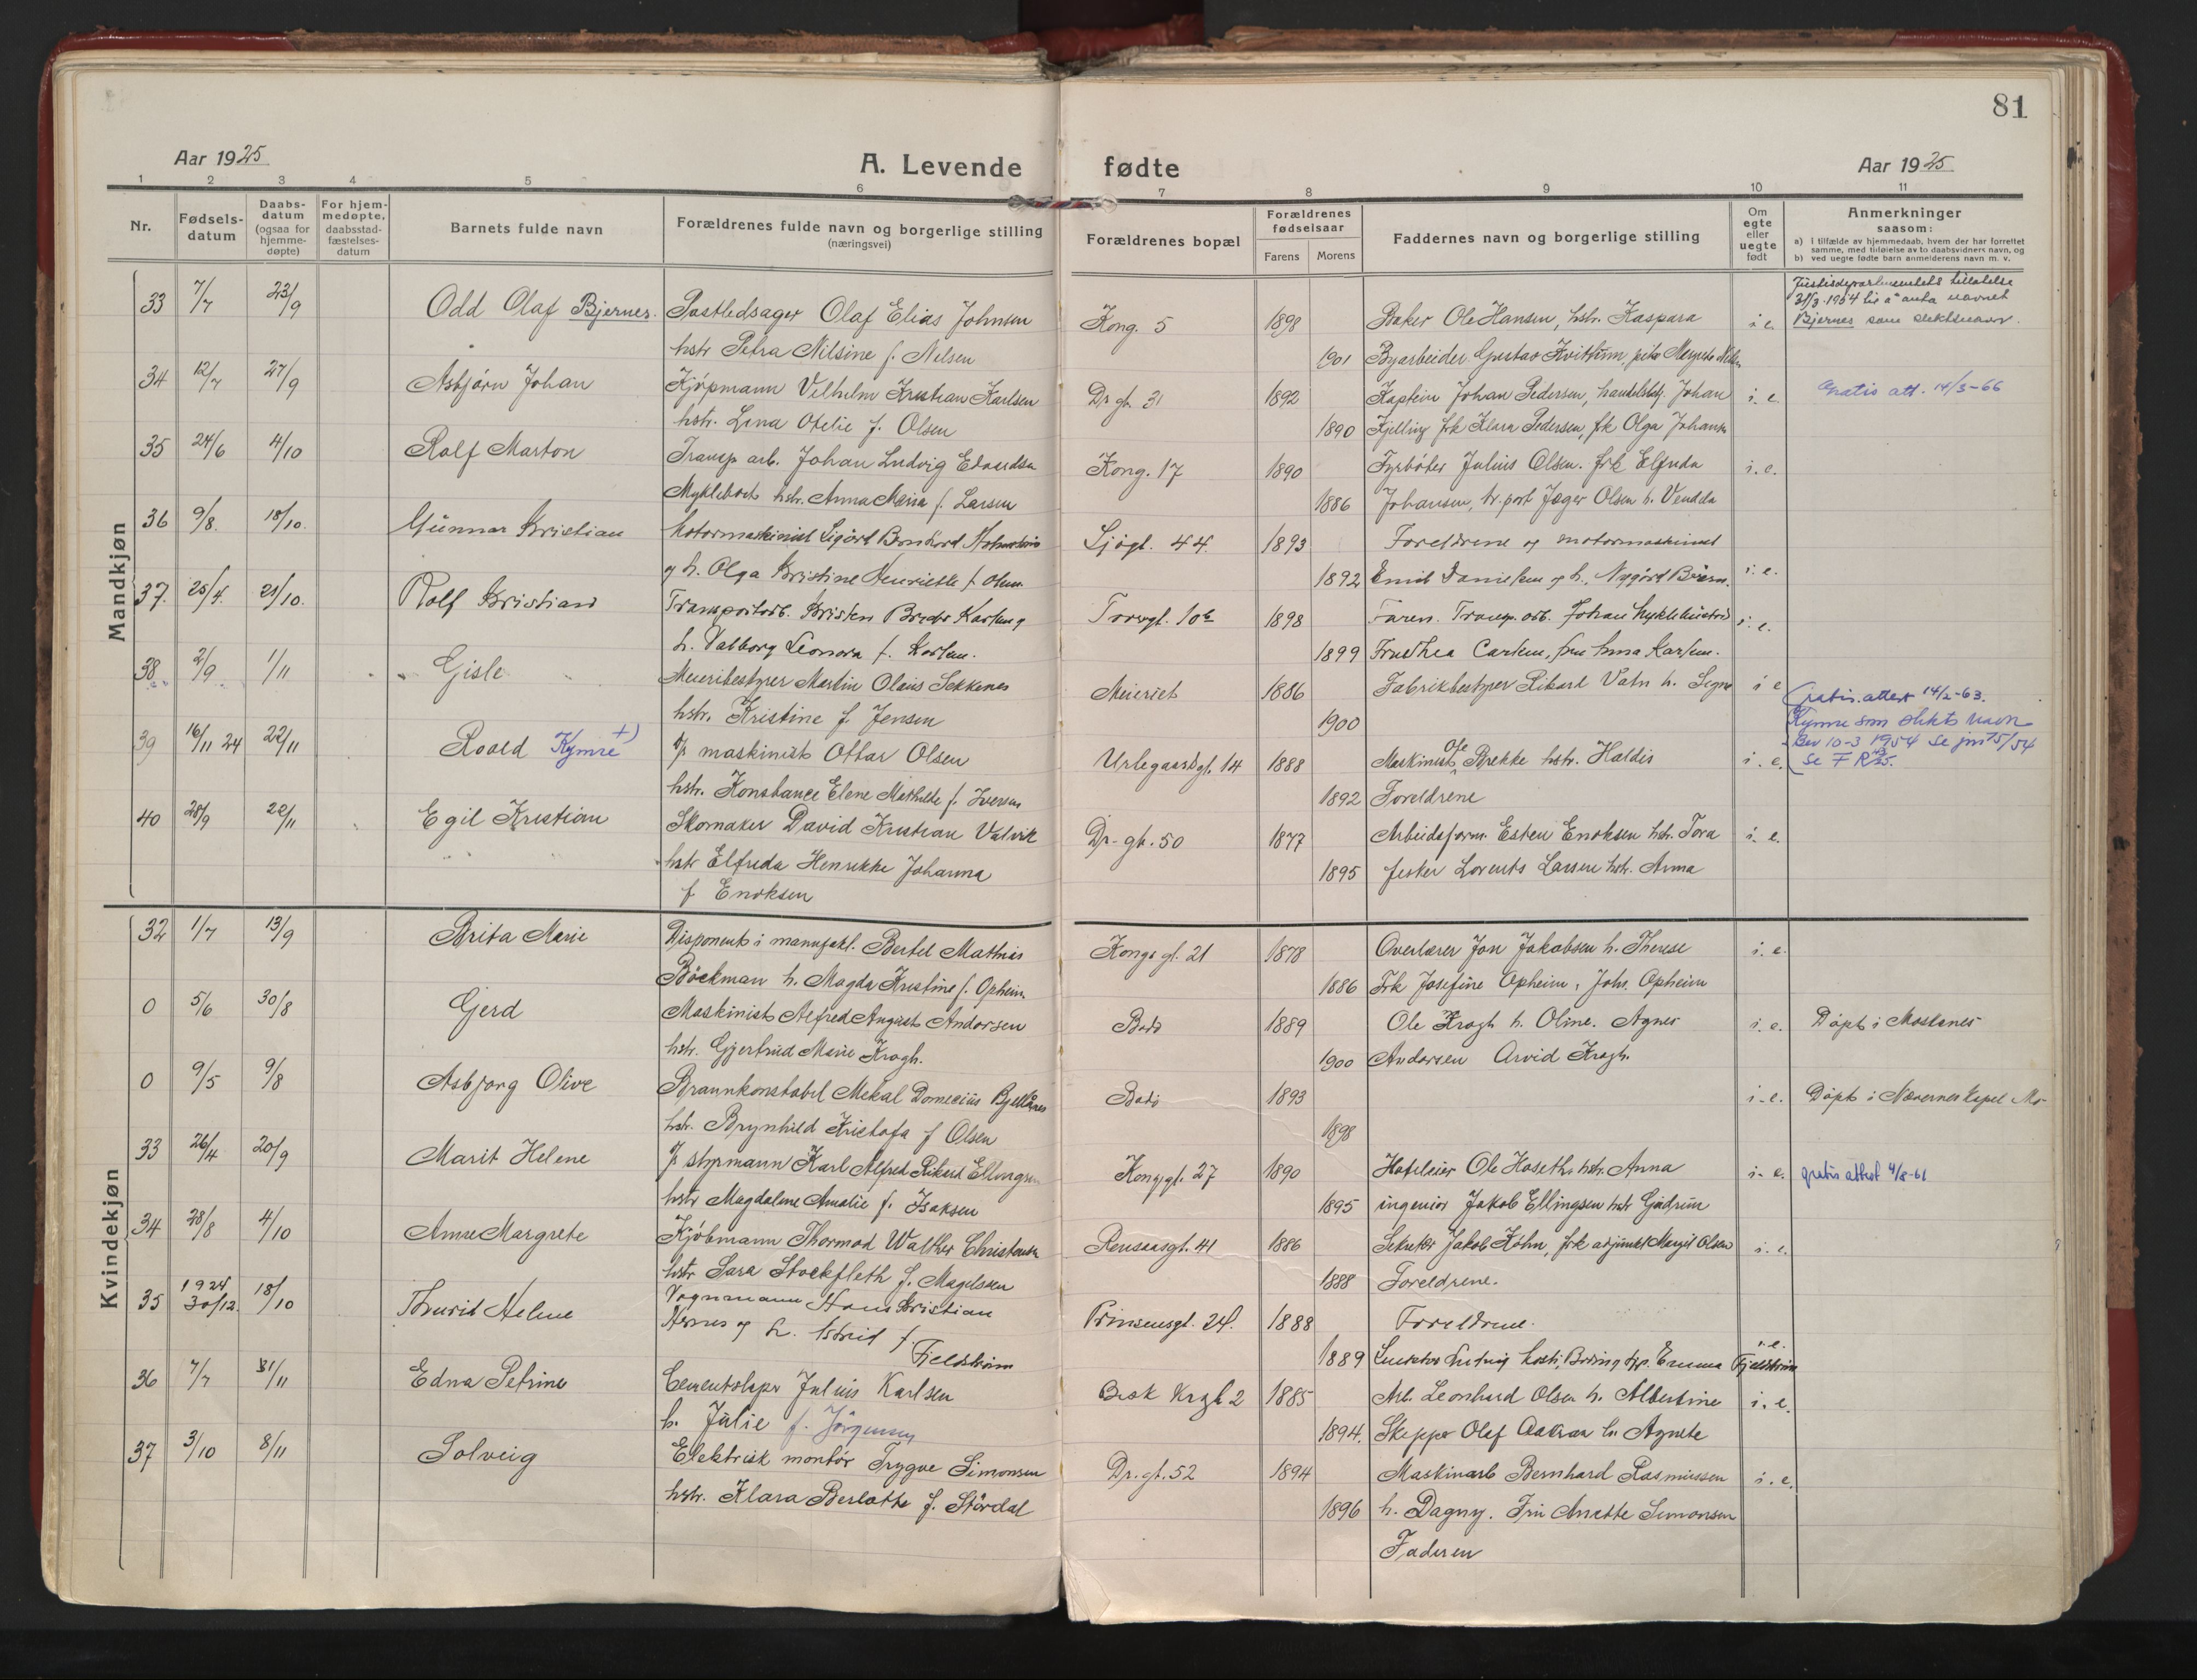 81
Aar 1925
A. Levende fødte
Aar 1925
1 2 3 4 5 6 7 8 9 10 11
Nr.
Fødselsdatum
Daabsdatum (ogsaa for hjemmedøpte)
For hjemmedøpte, daabsstadfæstelsesdatum
Barnets fulde navn
Forældrenes fulde navn og borgerlige stilling (næringsvei)
Forældrenes bopæl
Forældrenes fødselsaar
Farens Morens
Faddernes navn og borgerlige stilling
Om egte eller uegte født
Anmerkninger saasom:
a) i tilfælde av hjemmedaab, hvem der har forrettet samme, med tilføielse av to daabsvidners navn, og
b) ved uegte fødte barn anmelderens navn m. v.
Mandkjøn
Justisdepartementets tillatelse
31/3-1954 til å anta navnet
Bjernes som slektsnavn.
33 7/7 23/9 Odd Olaf Bjernes. Postledsager Olaf Elias Johnsen Kong. 5 1898 Baker Ole Hansen, hstr. Kaspara i e.
hstr Petra Nilsine f. Nilsen 1901 Byarbeider Gustav Kvithúm,
34 12/7 27/9 Asbjørn Johan Kjøpmann Vilhelm Kristian Karlsen Dr gt. 31 1892 Kaptein Johan Pedersen, Johan i. e. Gratis att. 14/3-66
hstr. Lina Otelie f. Olsen 1890 Kjelling frk Klara Pedersen, frk Olga
35 24/6 4/10 Rolf Marton Transp arb. Johan Ludvig Kong. 17 1890 Fyrbøter Julius Olsen. frk Elfrida i. e.
hstr. Anna Maria f. Larsen 1886 Johansen, Jæger Olsen h. Vendda
36 9/8. 18/10. Gúnnar Kristian Motormaskinist Sigurd Sjøgt. 44 1893 Foreldrene og motormaskinist
og h. Olga Kristine Henriette f. Olsen 1892 Emil Danielsen og h., i. e.
37. 25/4. 25/10. Rolf Kristian Transportarb. Kristen Karlsen og Torvgt. 10 1898 Faren. Transp. arb. Johan i. e.
h. Valborg Leonora f. Karlsen. 1899 Fru Thea Carlsen, fru Anna Karlsen.
38 2/9 1/11 Gisle Meieribestyrer Martin Olaus Sekkenes Meieriet 1886 Fabrikbestyrer Rikard Vatn h. Signe i e
hstr. Kristine f. Jensen 1900
Gratis. attest 14/2-63.
Kymre som slekts navn
Bev 10-3 1954 se jnr 75/54
se F R
39 16/11 24 22/11 Roald Kymre +) maskinist Ottar Olsen Urtegaardsgt. 14 1888 Maskinist Ole Brekke hstr. Haldis i. e.
hstr. Konstance Elene Mathilde f. Iversen 1892 Foreldrene
40 28/9 22/11 Egil Kristian Skomaker David Kristian Valvik Dr. gt. 50 1877 Arbeidsform. Esten Enoksen hstr. Tora i. e.
hstr Elfrida Henrikke Johanna 1895 fisker Lorents Larsen hstr. Anna
f Enoksen
Kvindekjøn
32 1/7 13/9 Brita Marie Disponent i manufakt. Bertel Mathias Kongs gt. 21 1878 Overlærer Jon Jakobsen h. Therese i. e.
Böckman h. Magda Kristine f. Opheim. 1886 Frk Josefine Opheim, Johs. Opheim
0 5/6 30/8 Gjerd Maskinist Alfred August Andorsen Bodø 1889 Ole Krogh h. Oline. Agnes i. e. Døpt i Mosknes
hstr. Gjertrud Marie Krogh. 1900 Andorsen Arvid Krogh.
0 9/5 9/8 Asbjørg Olive Brannkonstabel Mekal Domecius Bodø 1893 i. e. Døpt i Nævernes kapel Mo
hstr. Brynhild Kristofa f Olsen 1898
33 26/4 20/9 Marit Helene styrmann Karl Alfred Rikard Ellingsen Kongsgt. 27 1890 Ole Hoseth hstr. Anna i. e. gratis attest 4/8-61
hstr Magdalene Amalie f. Isaksen 1895 ingeniør Jakob Ellingsen hstr Gudrún
34 28/8 4/10 Anne Margrete Kjøbmann Thormod Walther Christensen Rensaasgt. 41 1886 Sekretær Jakob Køhn, frk adjunkt Margit Olsen i. e.
hstr Sara Stockfleth f. Magelssen 1888 Foreldrene.
35 1924 30/12. 18/10 Thurid Helene Vognmann Hans Kristian Prinsensgt. 24. 1888 Foreldrene.
Hernes og h. Astrid f. Fjeldstrøm 1889 Emma Fjeldstrøm i. e.
36 7/7 31/11 Edna Petrine Cementstøper Julius Karlsen 2 1885 Arb. Leonhard Olsen h. Albertine i. e.
h. Julie f. Jörgensen 1894. Skipper Olaf h. Agnete
37 3/10 8/11 Solveig Elektrisk montør Trygve Simonsen Dr. gt. 52 1894 Maskinarb Bernhard Rasmussen i. e.
hstr. Klara Berlotte f. Størdal 1896 h. Dagny. Frú Anette Simonsen
Faderen